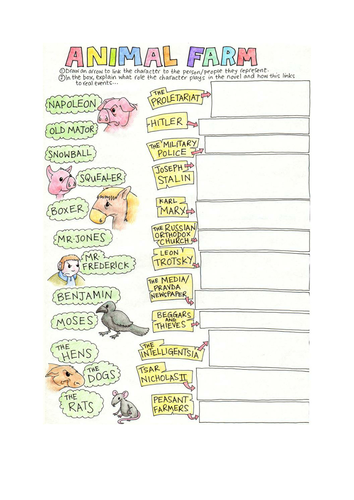 ANIMAL FARM
①Draw an arrow to link the character to the person/people they represent.
②In the box, explain what role the character plays in the novel and how this links
to real events...
NAPOLEON
OLD MAJOR
SNOWBALL
SQUEALER
BOXER
MR JONES
MR
FREDERICK
BENJAMIN
MOSES
THE
HENS
THE
DOGS
THE
RATS
THE
PROLETARIAT
HITLER
THE MILITARY
POLICE
JOSEPH
STALIN
KARL
MARX
THE RUSSIAN
ORTHODOX
CHURCH
LEON
TROTSKY
THE MEDIA/
PRAVDA
NEWSPAPER
BEGGARS
AND
THIEVES
THE
INTELLIGENTSIA
TSAR
NICHOLAS II
PEASANT
FARMERS